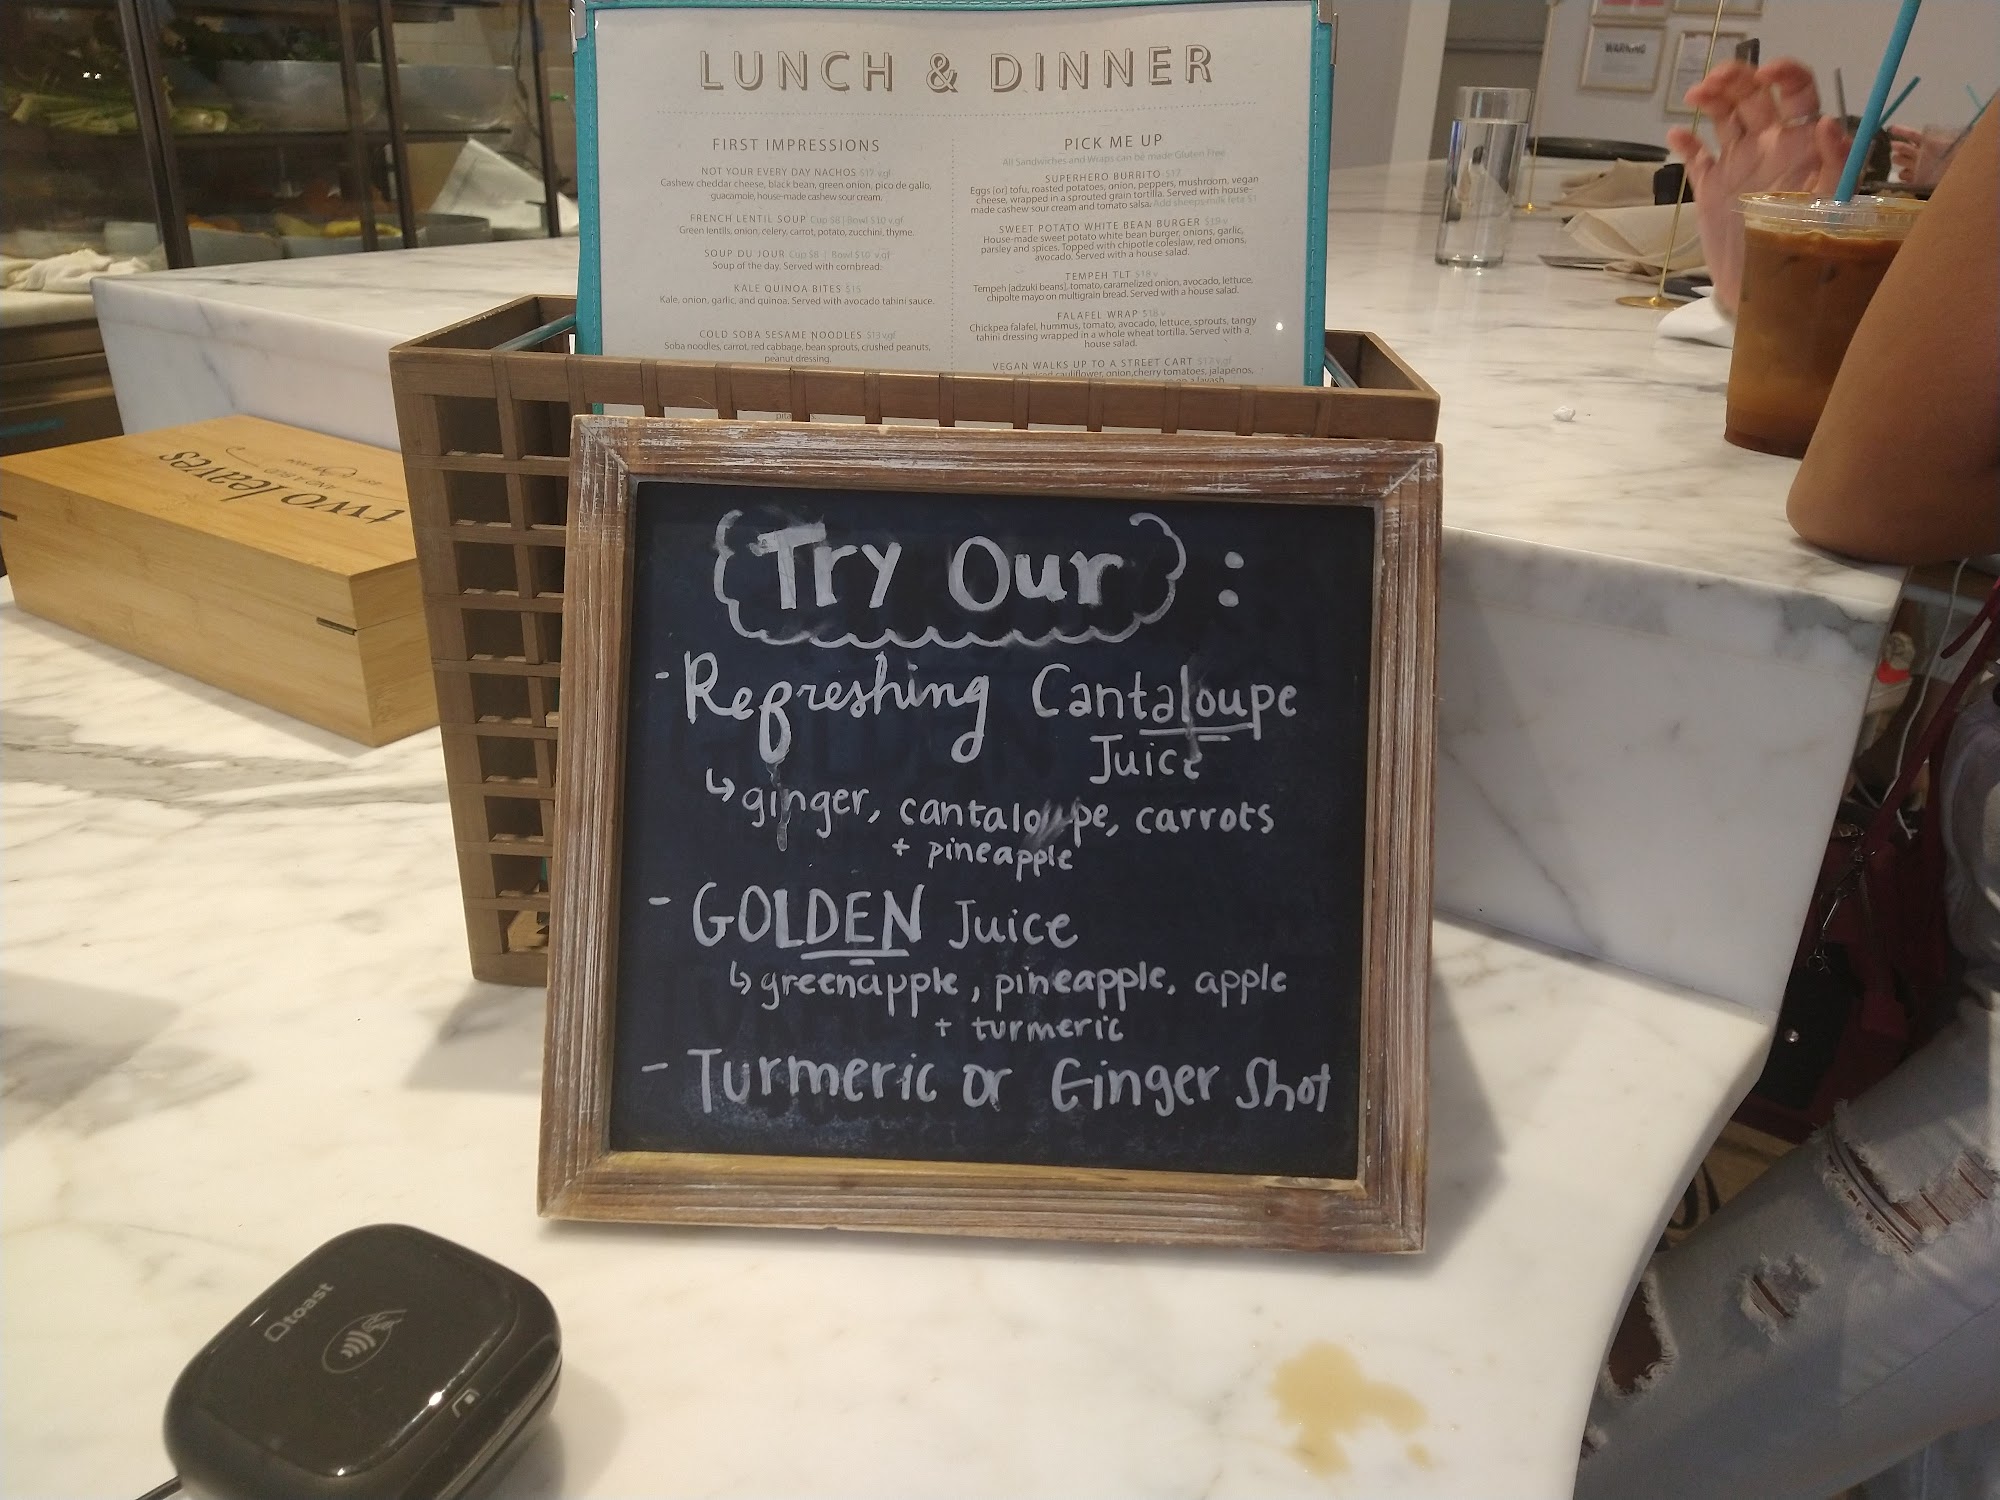 LUNCH & DINNER
FIRST IMPRESSIONS
NOT YOUR EVERY DAY NACHOS $17 vgf
Cashew cheddar cheese, black bean, green onion, pico de gallo,
guacamole, house-made cashew sour cream.
FRENCH LENTIL SOUP Cup $8 | Bowl $10 v.gf
Green lentils, onion, celery, carrot, potato, zucchini, thyme.
SOUP DU JOUR Cup $8 | Bowl $10 v.gf
Soup of the day. Served with cornbread.
KALE QUINOA BITES $15
Kale, onion, garlic, and quinoa. Served with avocado tahini sauce.
COLD SOBA SESAME NOODLES $13 vgf
Soba noodles, carrot, red cabbage, bean sprouts, crushed peanuts,
peanut dressing.
PICK ME UP
All Sandwiches and Wraps can be made Gluten Free
SUPERHERO BURRITO $17
Eggs (or) tofu, roasted potatoes, onion, peppers, mushroom, vegan
cheese, wrapped in a sprouted grain tortilla. Served with house-
made cashew sour cream and tomato salsa. Add sheeps milk feta $1
SWEET POTATO WHITE BEAN BURGER $19 v
House-made sweet potato white bean burger, onions, garlic,
parsley and spices. Topped with chipotle coleslaw, red onions,
avocado. Served with a house salad.
TEMPEH TLT $18 v
Tempeh [adzuki beans], tomato, caramelized onion, avocado, lettuce,
chipolte mayo on multigrain bread. Served with a house salad.
FALAFEL WRAP $18 v
Chickpea falafel, hummus, tomato, avocado, lettuce, sprouts, tangy
tahini dressing wrapped in a whole wheat tortilla. Served with a
house salad.
VEGAN WALKS UP TO A STREET CART $17 v.gf
cauliflower, onion, cherry tomatoes, jalapenos,
lavash
WARNING
two leaves
AND A BUD
Try Our :
- Refreshing Cantaloupe
Juice
↳ ginger, cantaloupe, carrots
+ pineapple
- GOLDEN Juice
↳ greenapple, pineapple, apple
+ turmeric
- Turmeric or Ginger Shot
toast